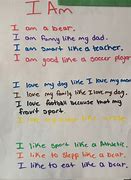 I Am
I am a bear.
I am funny like my dad.
I am smart like a teacher.
I am good like a soccer player
I love my dog like I love my mom
I love my family like I love my dog.
I love football because that my
fravort sport.
I like sport like a Athletic.
I like to sleep like a bear.
I like to eat like a bear.